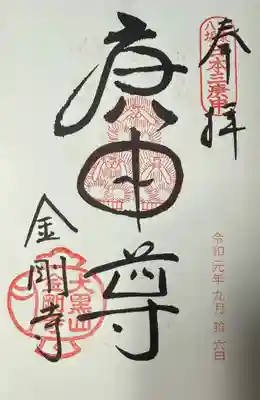 奉拝
日本三庚申
庚申尊
大黒山
金剛寺
金剛寺
令和元年九月拾六日